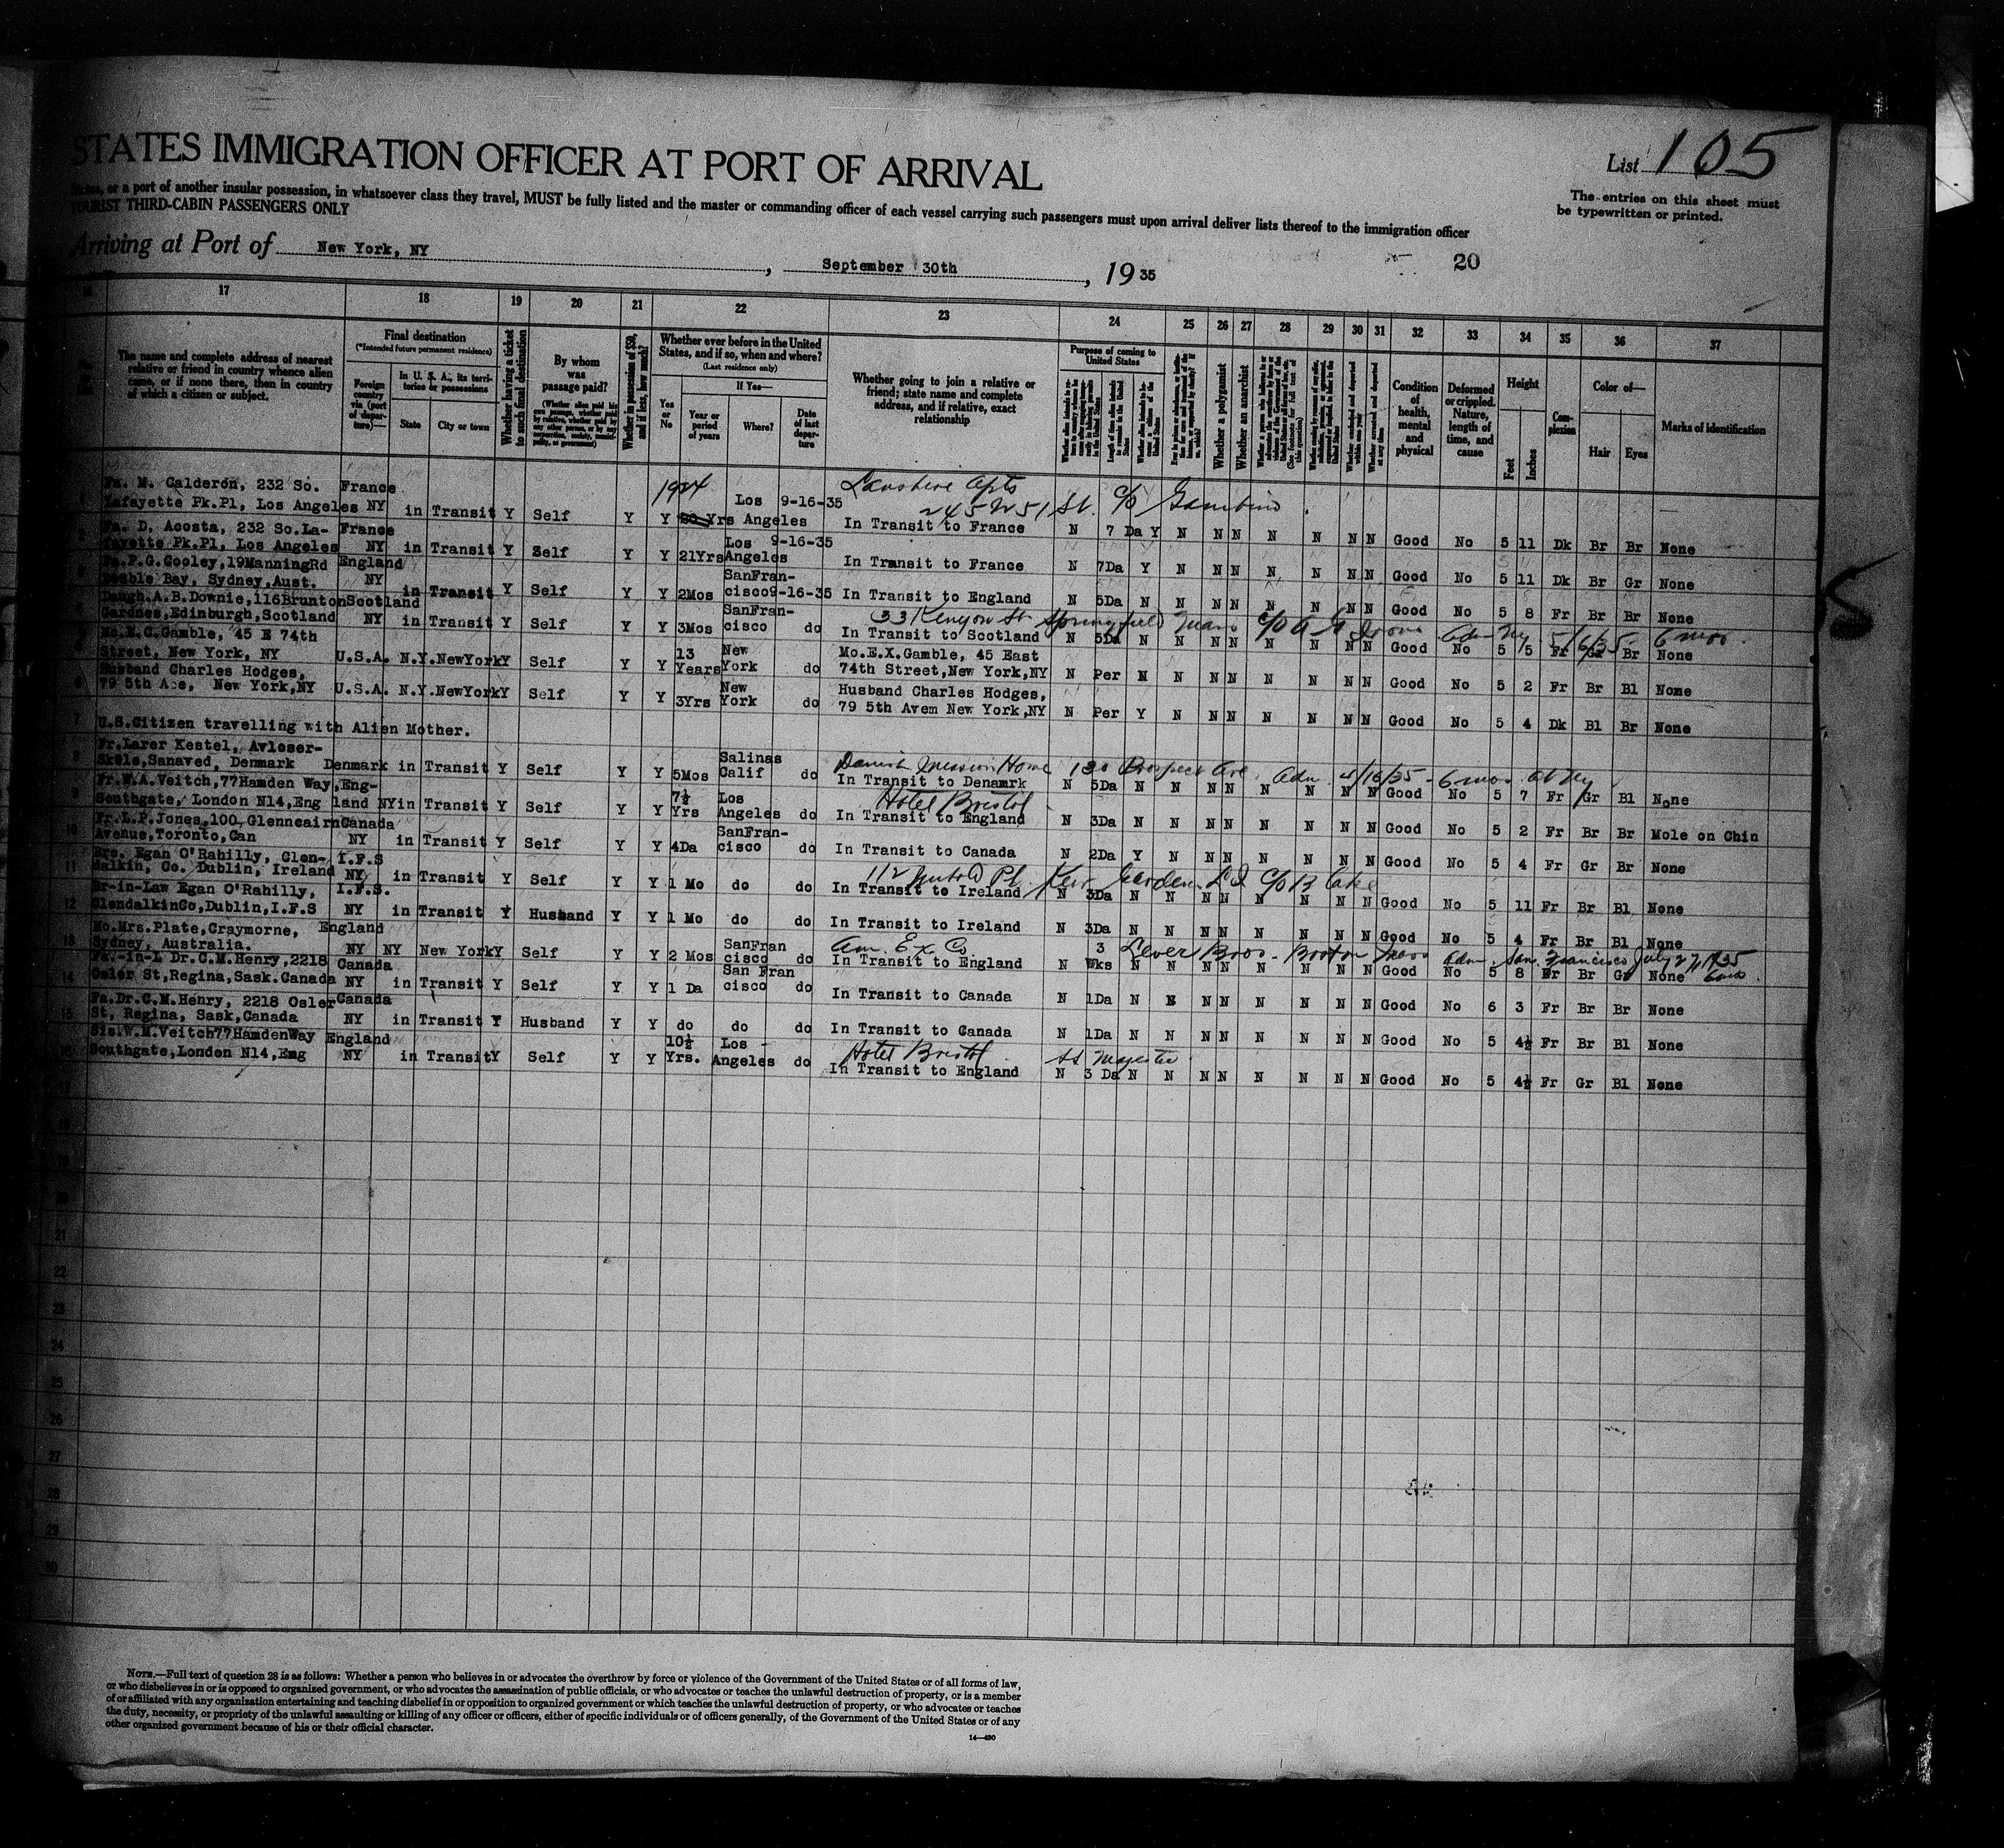 STATES IMMIGRATION OFFICER AT PORT OF ARRIVAL
List 105
States, or a port of another insular possession, in whatsoever class they travel, MUST be fully listed and the master or commanding officer of each vessel carrying such passengers must upon arrival deliver lists thereof to the immigration officer
The entries on this sheet must
be typewritten or printed.
TOURIST THIRD-CABIN PASSENGERS ONLY
Arriving at Port of New York, NY, September 30th, 19 35
20
17 18 19 20 21 22 23 24 25 26 27 28 29 30 31 32 33 34 35 36 37
The name and complete address of nearest
relative or friend in country whence alien
came, or if none there, then in country
of which a citizen or subject.
Final destination
(*Intended future permanent residence)
Foreign
country
via (port
of depar-
ture)—
In U. S. A., its terri-
tories or possessions
State
City or town
Whether having a ticket
to such final destination
By whom
was
passage paid?
(Whether alien paid his
own passage, whether paid
by relative, whether paid by
any other person, or by any
corporation, society, munici-
pality, or government)
Whether in possession of $50,
and if less, how much?
Whether ever before in the United
States, and if so, when and where?
(Last residence only)
Yes
or
No
If Yes—
Year or
period
of years
Where?
Date
of last
depar-
ture
Whether going to join a relative or
friend; state name and complete
address, and if relative, exact
relationship
Purpose of coming to
United States
Whether a polygamist
Whether an anarchist
Condition
of
health,
mental
and
physical
Deformed
or crippled.
Nature,
length of
time, and
cause
Height
Feet
Inches
Com-
plexion
Color of—
Hair
Eyes
Marks of identification
Fa. M. Calderón, 232 So. France 1924
Lafayette Pk.Pl, Los Angeles NY in Transit Y Self Y Y 20 Yrs Los Angeles 9-16-35 245 W 51 St. c/o Gambino
In Transit to France N 7 Da Y N N N N N N N Good No 5 11 Dk Br Br None
Fa. D. Acosta, 232 So.La- France
fayette Pk.Pl, Los Angeles NY in Transit Y Self Y Y 21Yrs Los Angeles 9-16-35 In Transit to France N 7Da Y N N N N N N N Good No 5 11 Dk Br Gr None
Fa.F.G.Cooley,19ManningRd England
Double Bay, Sydney,Aust. NY in Transit Y Self Y Y 2Mos SanFran-cisco 9-16-35 In Transit to England N 5Da N N N N N N N N Good No 5 8 Fr Br Br None
Daugh.A.B.Downie,116Brunton Scotland
Gardnes,Edinburgh,Scotland NY in Transit Y Self Y Y 3Mos SanFran-cisco do 33 Kenyon St Springfield Mass
In Transit to Scotland N 5Da N N N N N N N N Good No 5 5 Fr Gr Br None 5/6/35 6 mos
Mo.E.C.Gamble, 45 E 74th
Street, New York, NY U.S.A. N.Y. NewYork Y Self Y Y 13 Years New York do Mo.E.X.Gamble, 45 East
74th Street,New York,NY N Per N N N N N N N N Good No 5 2 Fr Br Bl None
Husband Charles Hodges,
79 5th Ace, New York,NY U.S.A. N.Y. NewYork Y Self Y Y 3Yrs New York do Husband Charles Hodges,
79 5th Avem New York,NY N Per Y N N N N N N N Good No 5 4 Dk Bl Br None
7 U.S.Citizen travelling with Alien Mother.
Fr.Larer Kestel, Avloser-
Skole,Sanaved, Denmark Denmark in Transit Y Self Y Y 5Mos Salinas Calif do Danish Mission Home 130 Prospect Ave. Adm. 4/16/35 - 6 mos. at NY
In Transit to Denamrk N 5Da N N N N N N N N Good No 5 7 Fr Gr Bl None
Fr.W.A.Veitch,77Hamden Way,Eng-
Southgate, London N14,Eng land NY in Transit Y Self Y Y 7½ Yrs Los Angeles do Hotel Bristol
In Transit to England N 3Da N N N N N N N N Good No 5 2 Fr Br Br Mole on Chin
Fr.L.P.Jones,100 Glenncairn Canada
10 Avenue,Toronto,Can NY in Transit Y Self Y Y 4Da SanFran-cisco do In Transit to Canada N 2Da Y N N N N N N N Good No 5 4 Fr Gr Br None
Bro. Egan O'Rahilly, Clen- I.F.S
11 dalkin, Co. Dublin, Ireland NY in Transit Y Self Y Y 1 Mo do do 112 Pl Kew Gardens L I c/o
In Transit to Ireland N 3Da N N N N N N N N Good No 5 11 Fr Br Bl None
Br-in-Law Egan O'Rahilly, I.F.S.
12 ClendalkinCo,Dublin,I.F.S NY in Transit Y Husband Y Y 1 Mo do do In Transit to Ireland N 3Da N N N N N N N N Good No 5 4 Fr Br Bl None
Mo.Mrs.Plate,Craymorne, England
13 Sydney, Australia. NY NY New York Y Self Y Y 2 Mos SanFran cisco do Am. Ex Co. Lever Bros - Boston Mass Adm. San Francisco July 27, 1935 6 mos
In Transit to England N 3 Wks N N N N N N N N Good No 5 8 Fr Br Gr None
Fa.-in-L Dr.C.M.Henry,2218 Canada
14 Osler St,Regina,Sask.Canada NY in Transit Y Self Y Y 1 Da San Fran cisco do In Transit to Canada N 1Da N N N N N N N N Good No 6 3 Fr Br Br None
Fa.Dr.C.M.Henry, 2218 Osler Canada
15 St, Regina, Sask,Canada NY in Transit Y Husband Y Y do do do In Transit to Canada N 1Da N N N N N N N N Good No 5 4½ Fr Br Bl None
Sis.W.M.Veitch77HamdenWay England
16 Southgate,London N14,Emg NY in Transit Y Self Y Y 10½ Yrs. Los Angeles do Hotel Bristol SS Majestic
In Transit to England N 3 Da N N N N N N N N Good No 5 4½ Fr Gr Bl None
17
21
22
23
24
25
26
27
28
29
30
NOTE.—Full text of question 28 is as follows: Whether a person who believes in or advocates the overthrow by force or violence of the Government of the United States or of all forms of law,
or who disbelieves in or is opposed to organized government, or who advocates the assassination of public officials, or who advocates or teaches the unlawful destruction of property, or is a member
of or affiliated with any organization entertaining and teaching disbelief in or opposition to organized government or which teaches the unlawful destruction of property, or who advocates or teaches
the duty, necessity, or propriety of the unlawful assaulting or killing of any officer or officers, either of specific individuals or of officers generally, of the Government of the United States or of any
other organized government because of his or their official character.
14—430